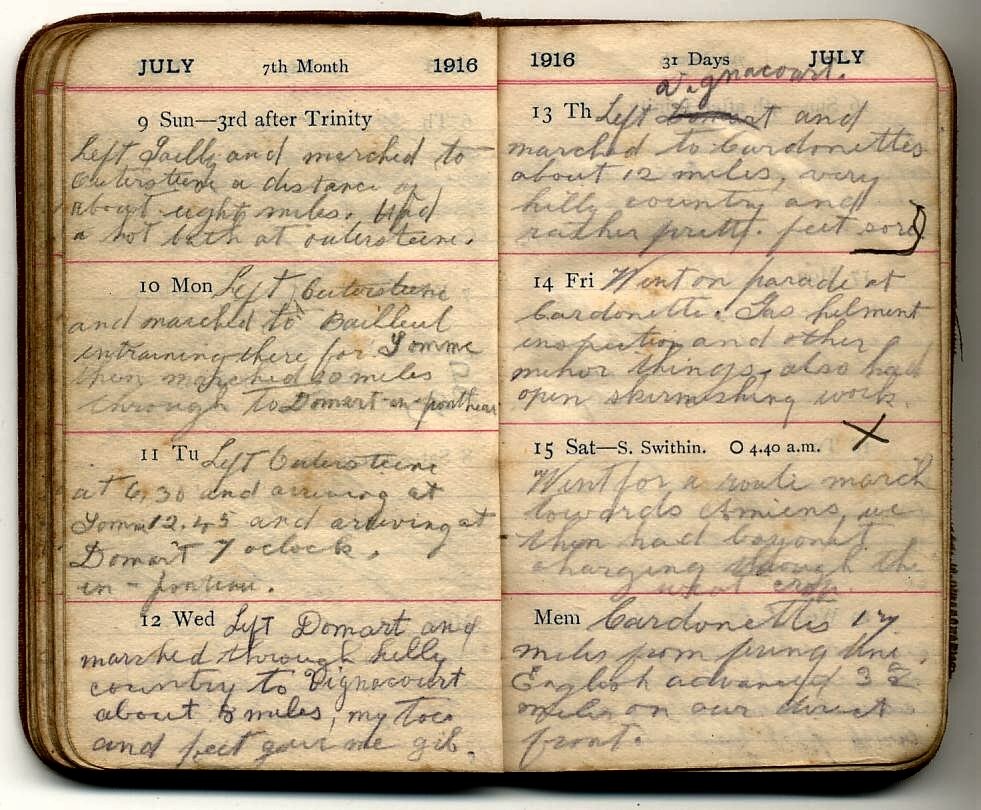 JULY 7th Month 1916
9 Sun—3rd after Trinity
Left Sailly and marched to
Outersteene a distance of
about eight miles. Had
a hot bath at outersteene.
10 Mon Left Outersteene
and marched to Bailleul
entraining there for Somme
then marched 20 miles
through to Domart-en-ponthieu
11 Tu Left Outersteene
at 6.30 and arriving at
Somme 12.45 and arriving at
Domart 7 oclock.
en-
12 Wed Left Domart and
marched through hilly
country to Vignacourt
about 8 miles, my toes
and feet gave me gib.
1916 31 Days JULY
Vignacourt.
13 Th Left Domart and
marched to Cardonettes
about 12 miles, very
hilly country and
rather pretty. feet sore
14 Fri Went on parade at
Cardonette. Gas helment
inspection and other
minor things, also had
open skirmishing work.
15 Sat—S. Swithin. O 4.40 a.m. X
Went for a route march
towards Amiens, we
then had bayonet
charging through the
wheat crop
Mem Cardonettes 17
miles from firing line.
English advanced 3
miles on our direct
front.